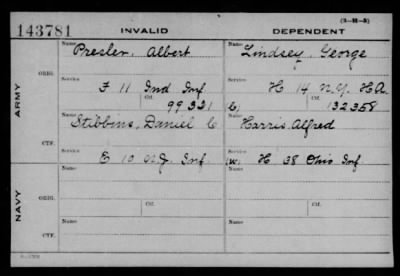 143781 INVALID DEPENDENT (3-312-3)
ARMY
ORIG.
Name Presler, Albert Name Lindsey, George
Service F 11 Ind Inf. Service H 14 N.Y. H.A.
Ctf. 99331 C, Ctf. 132358
CTF.
Name Stibbins, Daniel C Name Harris Alfred
Service E 10 N.J. Inf. (W) Service H 38 Ohio Inf
NAVY
ORIG.
Name Name
Service Ctf. Service Ctf.
CTF.
Name Name
Service Service